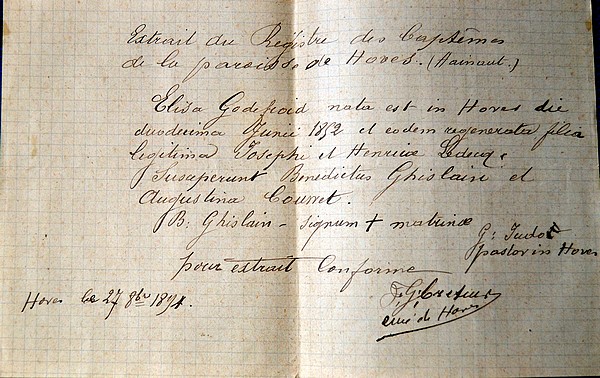 Extrait du Régistre des Baptêmes
de la paroisse de Hoves. (Hainaut.)
Elisa Godefroid nata est in Hoves die
duodecima Junii 1852 et eodem regenerata filia
legitima Josephi et Henricæ Leclecq.
Susceperunt Benedictus Ghislain et
Augustina Couvret.
B. Ghislain - signum + matrinæ
G: Tudor
pastor in Hoves
pour extrait Conforme
Hoves le 27 8bre 1891.
curé de Hoves